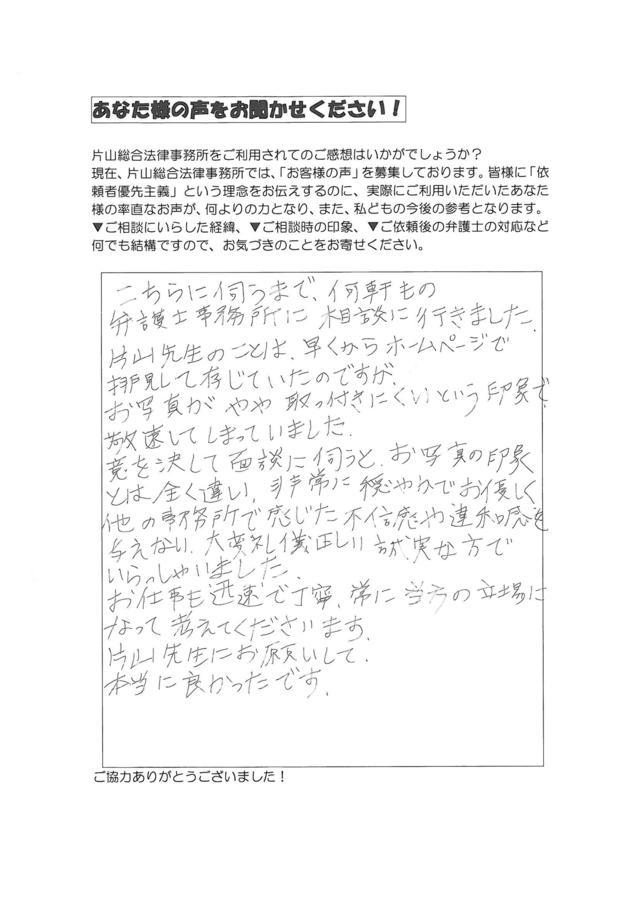 あなた様の声をお聞かせください!
片山総合法律事務所をご利用されてのご感想はいかがでしょうか?
現在、片山総合法律事務所では、「お客様の声」を募集しております。皆様に「依
頼者優先主義」という理念をお伝えするのに、実際にご利用いただいたあなた
様の率直なお声が、何よりの力となり、また、私どもの今後の参考となります。
▼ご相談にいらした経緯、▼ご相談時の印象、▼ご依頼後の弁護士の対応など
何でも結構ですので、お気づきのことをお寄せください。
こちらに伺うまで、何軒もの
弁護士事務所に相談に行きました。
片山先生のことは、早くからホームページで
拝見して存じていたのですが、
お写真がやや取っ付きにくいという印象で、
敬遠してしまっていました。
意を決して面談に伺うと、お写真の印象
とは全く違い、非常に穏やかでお優しく
他の事務所で感じた不信感や違和感を
与えない、大変礼儀正しい誠実な方で
いらっしゃいました。
お仕事も迅速で丁寧、常に当方の立場に
なって考えてくださいます。
片山先生にお願いして、
本当に良かったです。
ご協力ありがとうございました!